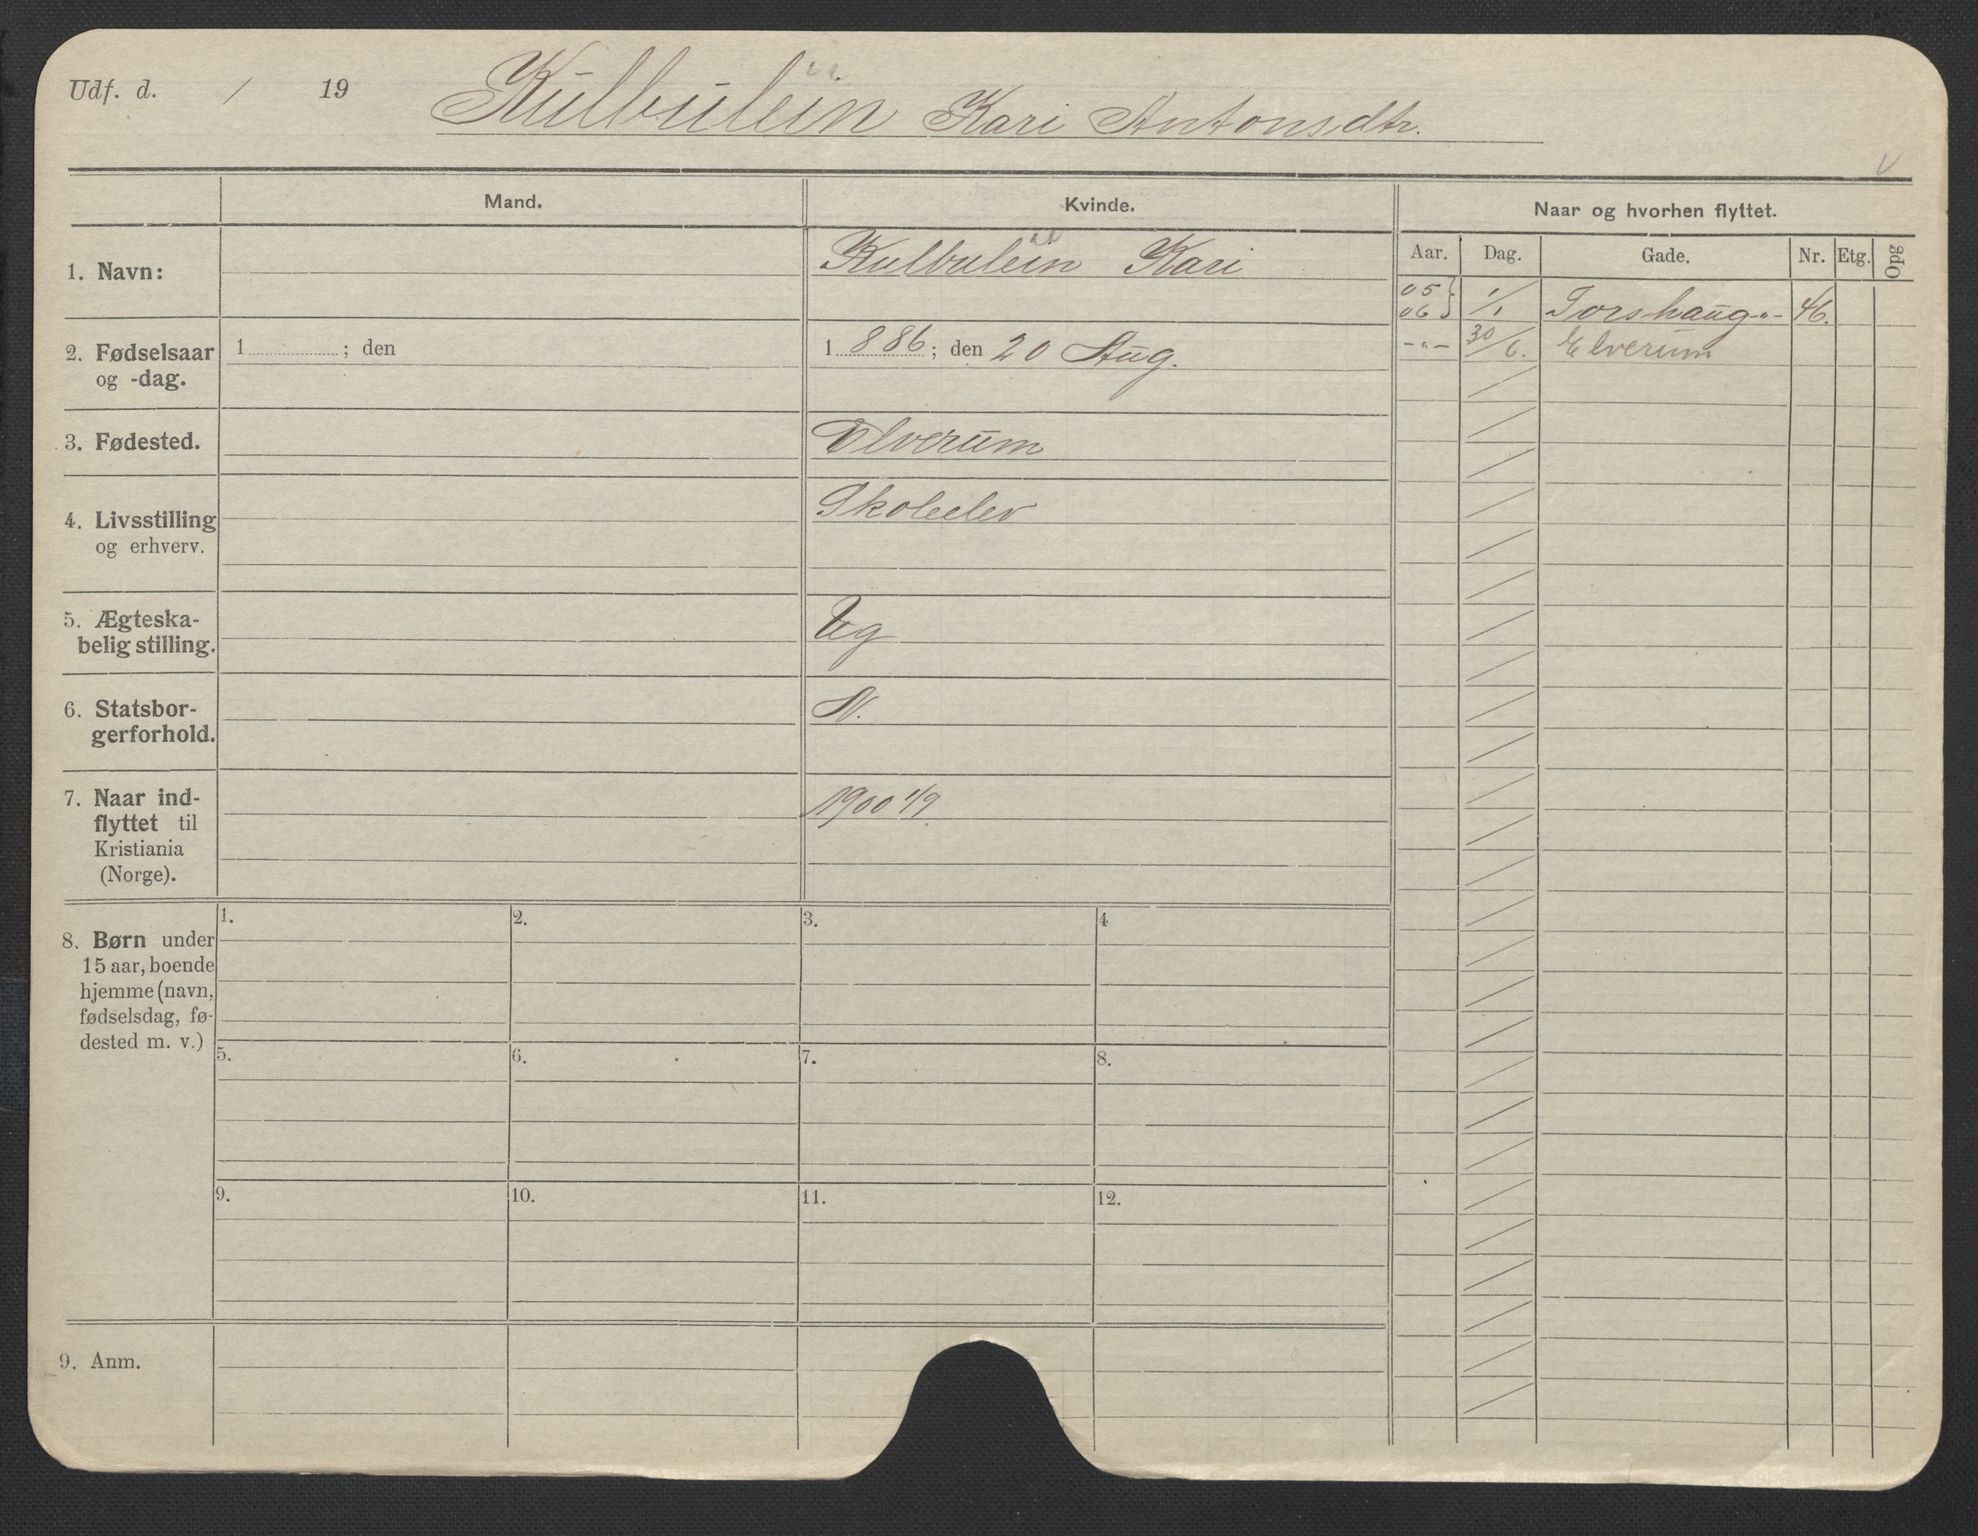 Udf. d. / 19 Kulbulein Kari Antonsdtr.
Mand.
Kvinde.
Naar og hvorhen flyttet.
Aar. Dag. Gade. Nr. Etg. Opg
1. Navn: Kulbulein Kari
05 } 1/1 Torshaug -"- 46.
06
-"- 30/6. Elverum
2. Fødselsaar 1 ; den 1 886 ; den 20 Aug.
og -dag.
3. Fødested. Elverum
4. Livsstilling Skoleelev
og erhverv.
5. Ægteska-
belig stilling. Ug
6. Statsbor- N.
gerforhold.
7. Naar ind- 1900 1/9
flyttet til
Kristiania
(Norge).
8. Børn under
15 aar, boende
hjemme (navn,
fødselsdag, fø-
dested m. v.)
1. 2. 3. 4
5. 6. 7. 8.
9. 10. 11. 12.
9. Anm.